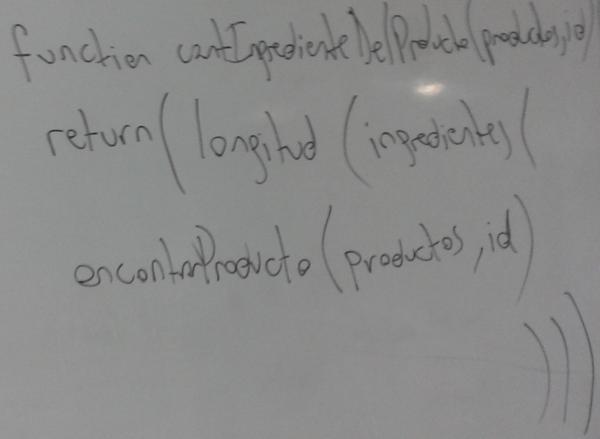 function cantIngredienteDelProducto(productos,id)
return( longitud (ingredientes (
encontrarProducto (productos, id)
)))